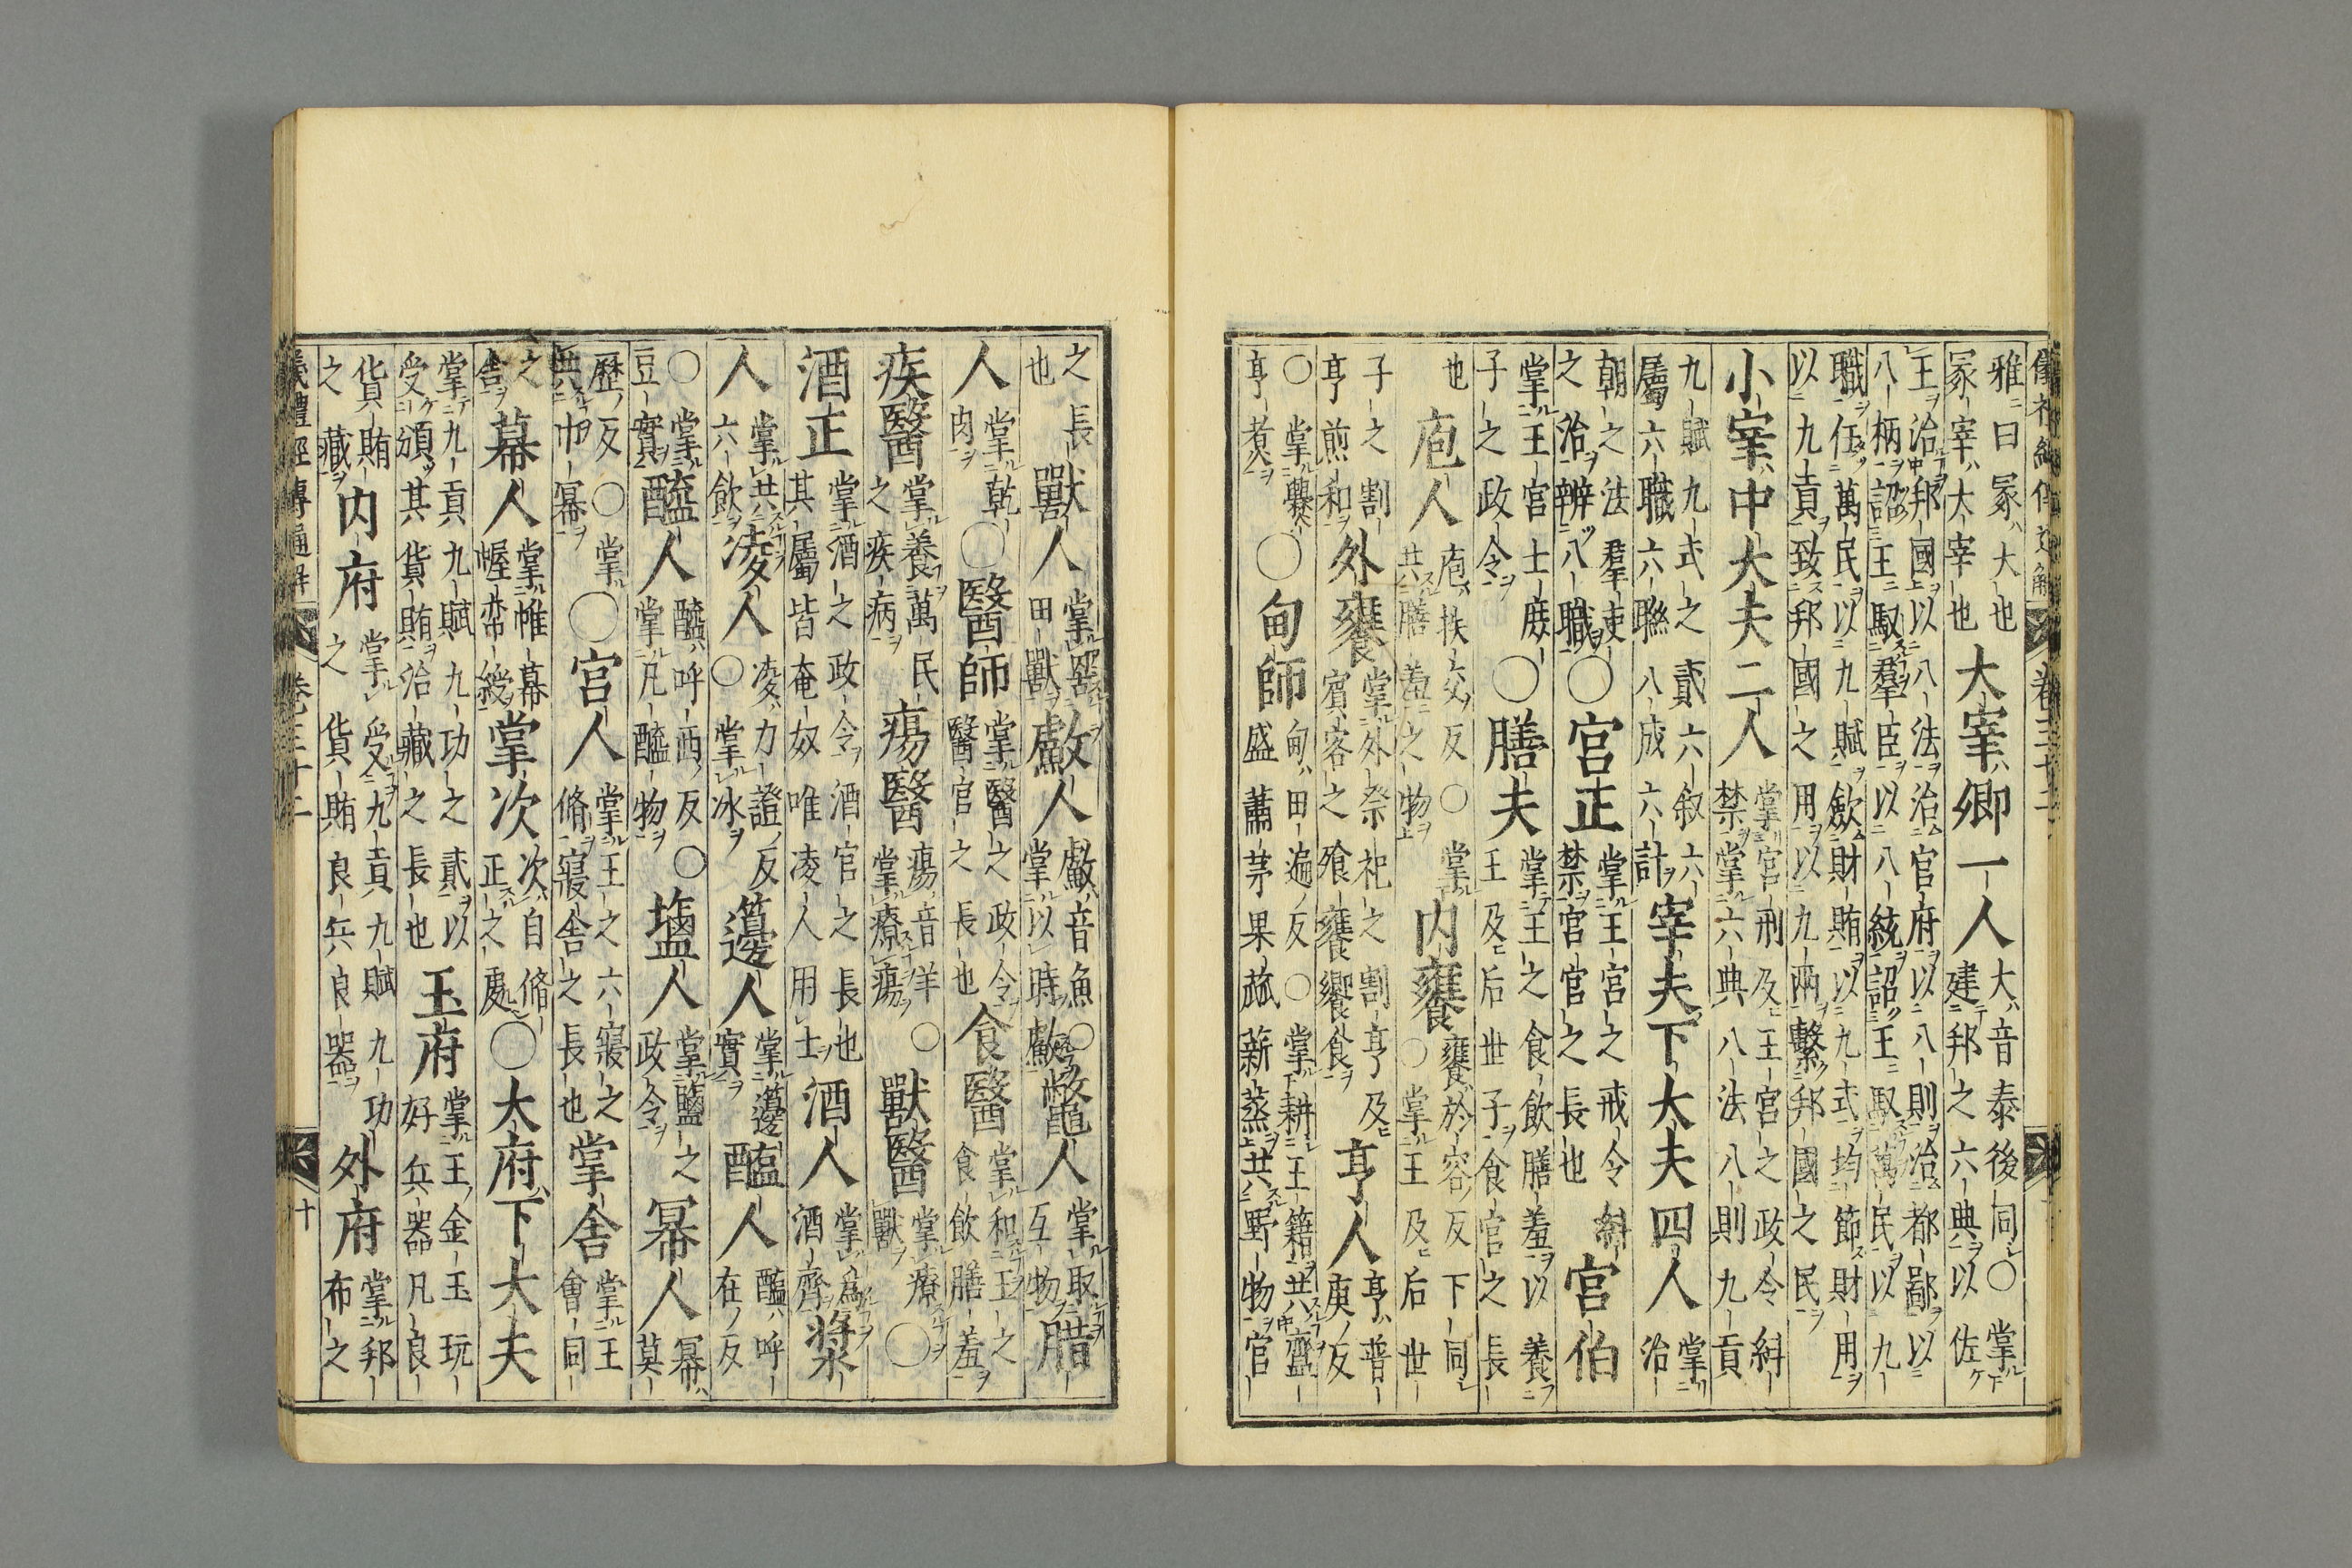 儀禮經傳通解 卷三十二
雅曰冢大也冢宰大宰也大宰卿一人大音泰後同○掌建邦之六典以佐
王治邦國以八法治官府以八則治都鄙以八柄詔王馭羣臣以八統詔王馭萬民以九
職任萬民以九賦斂財賄以九式均節財用以九貢致邦國之用以九兩繫邦國之民
小宰中大夫二人掌官刑及王宮之政令糾禁掌六典八法八則九貢
九賦九式之貳六敘六屬六職六聯八成六計宰夫下大夫四人掌治
朝之法羣吏之治辨八職○宮正掌王宮之戒令糾禁官官之長也宮伯
掌王宮士庶子之政令○膳夫掌王之食飲膳羞以養王及后世子食官之長
也庖人庖扶交反○掌共膳羞之物內饔饔於容反下同○掌王及后世
子之割亨煎和外饔掌外祭祀之割亨及賓客之飧饔饗食亨人亨普庚反
○掌爨亨煮○甸師甸田遍反○掌耕王籍共齍盛蕭茅果蓏薪蒸共野物官
之長也獸人掌罟田獸䱷人䱷音魚○掌以時䱷鼈人掌取互物腊
人掌乾肉○醫師掌醫之政令醫官之長也食醫掌和王之食飲膳羞
疾醫掌養萬民之疾病瘍醫瘍音羊○掌療瘍獸醫掌療獸○
酒正掌酒之政令酒官之長也其屬皆奄奴唯凌人用士酒人掌爲酒齊漿
人掌共六飲凌人凌力證反○掌冰籩人掌籩實醢人醢呼在反
○掌豆實醯人醯呼西反○掌凡醯物○鹽人掌鹽之政令冪人冪莫
歷反○掌共巾冪○宮人掌王之六寢之脩寢舍之長也掌舍掌王會同
之舍幕人掌帷幕幄帟綬掌次次自脩正之處○大府下大夫
掌九貢九賦九功之貳以受頒其貨賄治藏之長也玉府掌王金玉玩好兵器凡良
貨賄之藏內府掌受九貢九賦九功之貨賄良兵良器外府掌邦布之
儀禮經傳通解 卷三十二 十